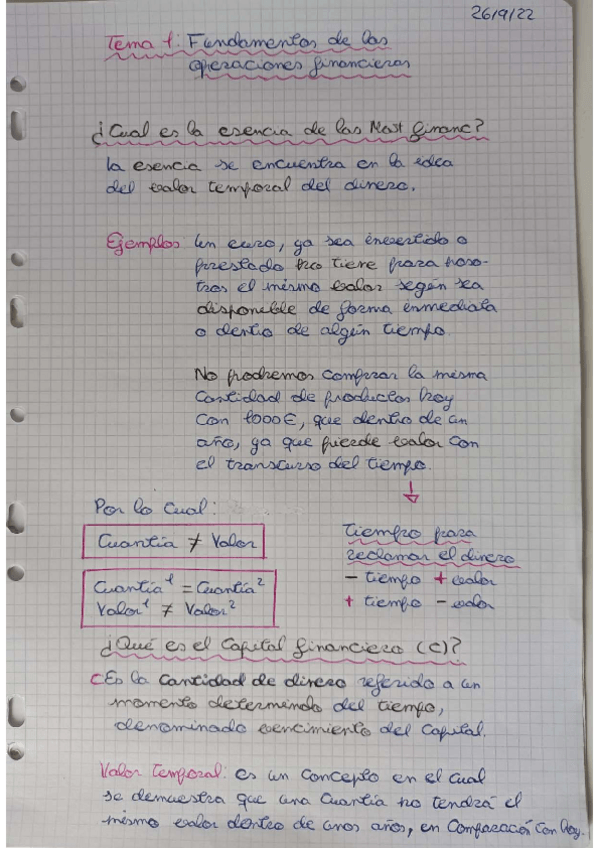 26/9/22
Tema 1: Fundamentos de las
operaciones financieras
¿Cual es la esencia de las Mat financ?
la esencia se encuentra en la idea
del valor temporal del dinero.
Ejemplos: Un euro, ya sea invertido o
prestado no tiene para noso-
tros el mismo valor según sea
disponible de forma inmediata
o dentro de algún tiempo.
No podremos comprar la misma
cantidad de productos hoy
con 1000€, que dentro de un
año, ya que pierde valor con
el transcurso del tiempo.
Por lo cual:
Cuantía ≠ Valor
Cuantía¹ = Cuantía²
Valor¹ ≠ Valor²
Tiempo para
reclamar el dinero
- tiempo + valor
+ tiempo - valor
¿Qué es el Capital financiero (C)?
C Es la cantidad de dinero referido a un
momento determinado del tiempo,
denominado vencimiento del capital.
Valor Temporal: es un concepto en el cual
se demuestra que una cuantía no tendrá el
mismo valor dentro de unos años, en comparación con hoy.